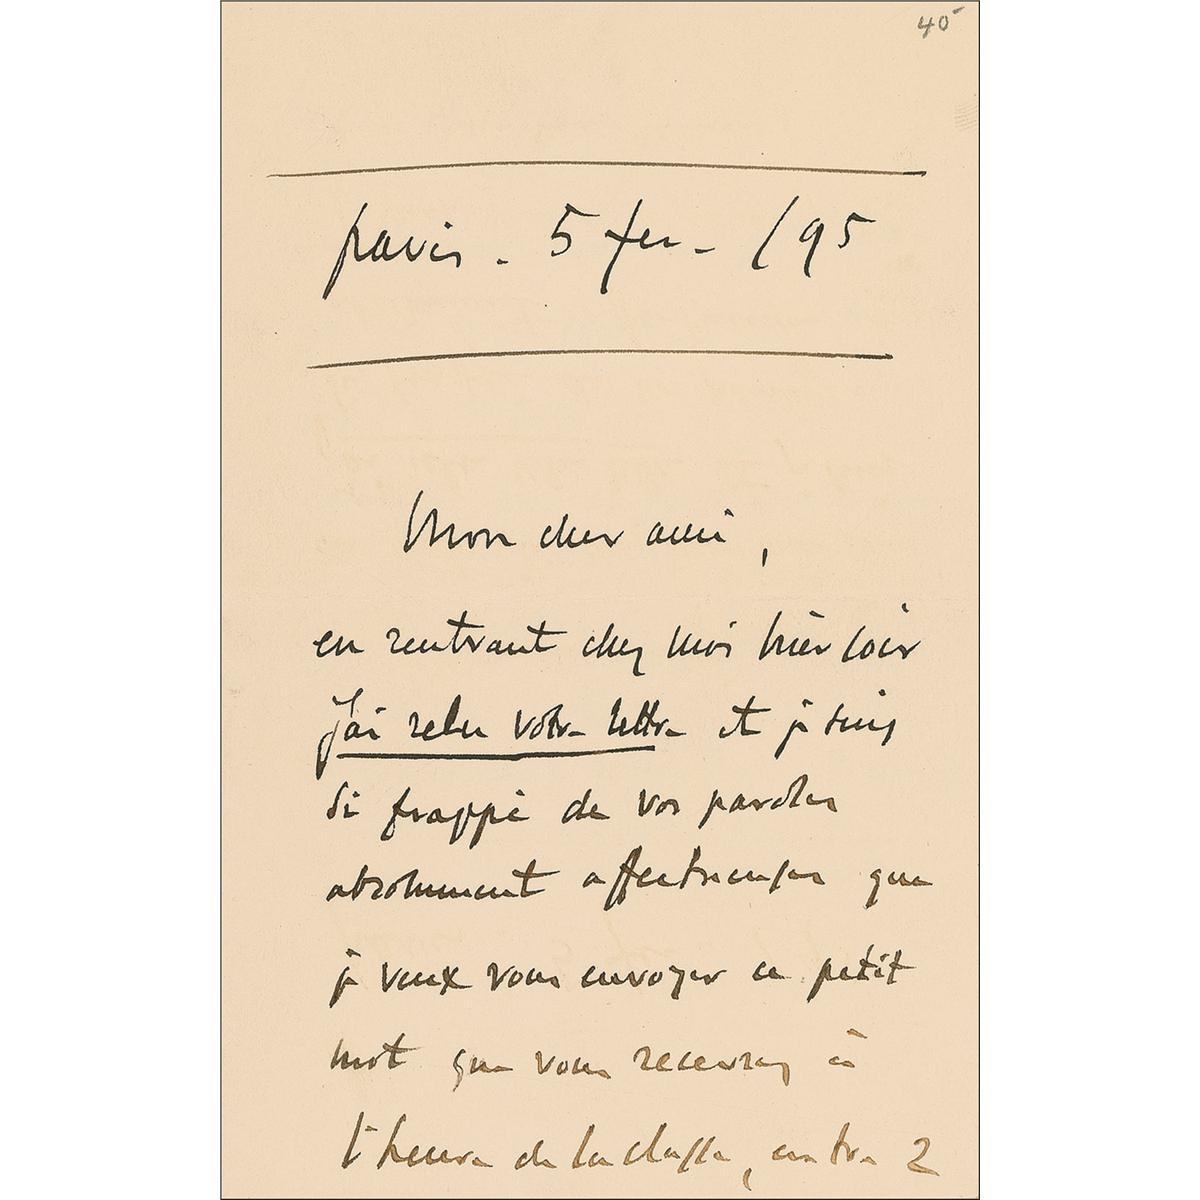 40
paris - 5 fev - /95
Mon cher ami,
en rentrant chez moi hièr soir
J'ai relu votre lettre et je suis
si frappé de vos paroles
absolument affectueuses que
je veux vous envoyer ce petit
mot que vous recevrez à
l'heure de la classe, entre 2